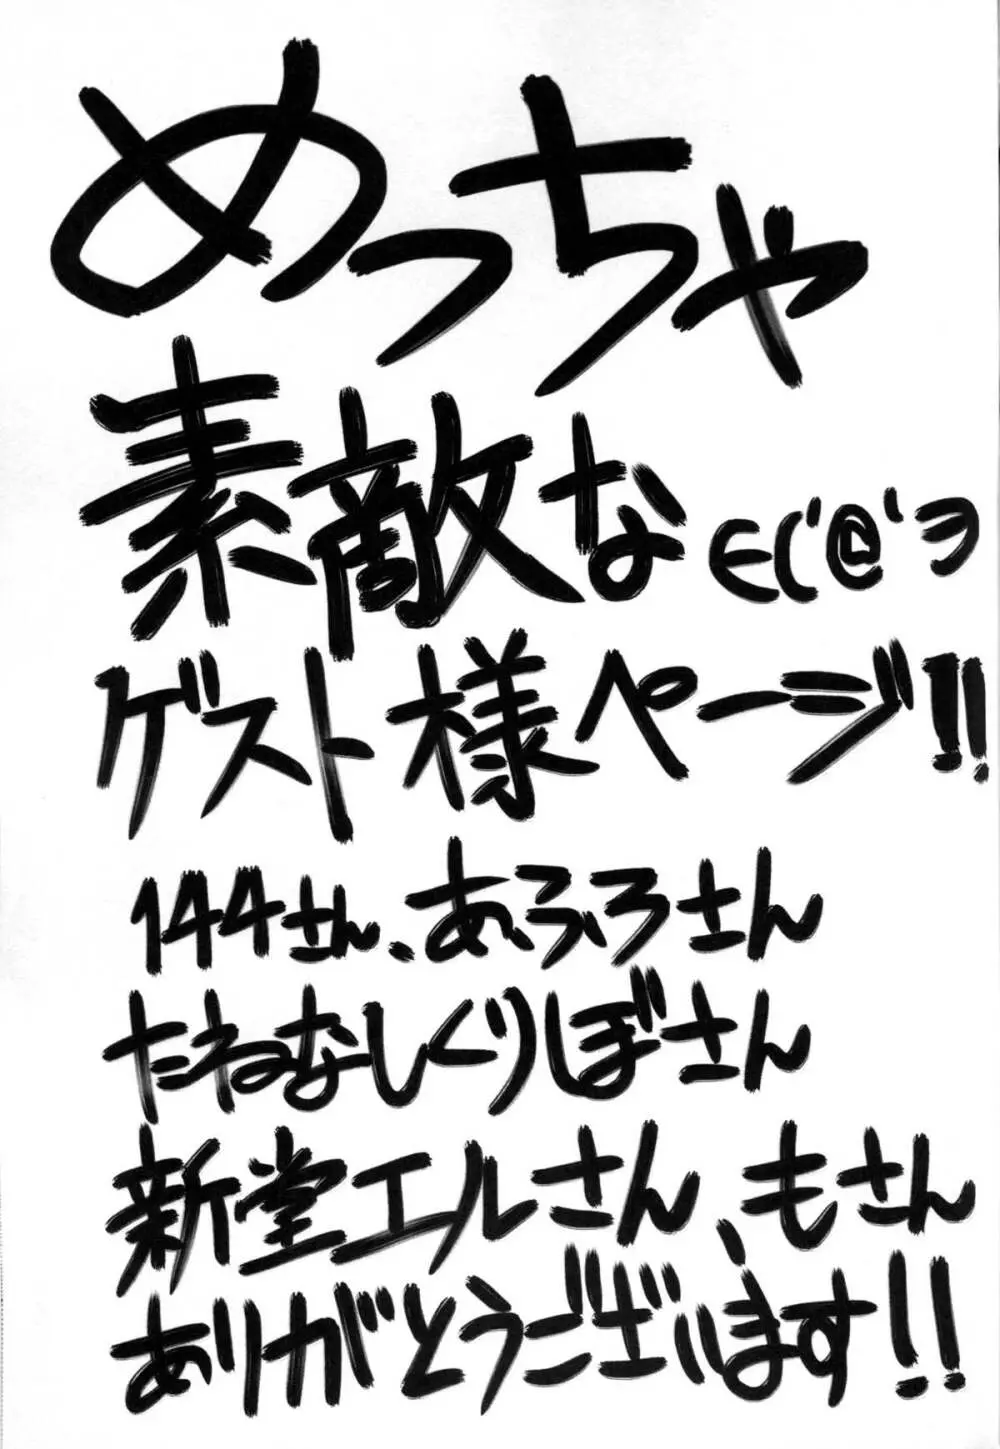 めっちゃ
素敵な ∈('@'ヨ
ゲスト様ページ!!
144さん、あふろさん
たねなしくりぼさん
新堂エルさん、もさん
ありがとうございます!!